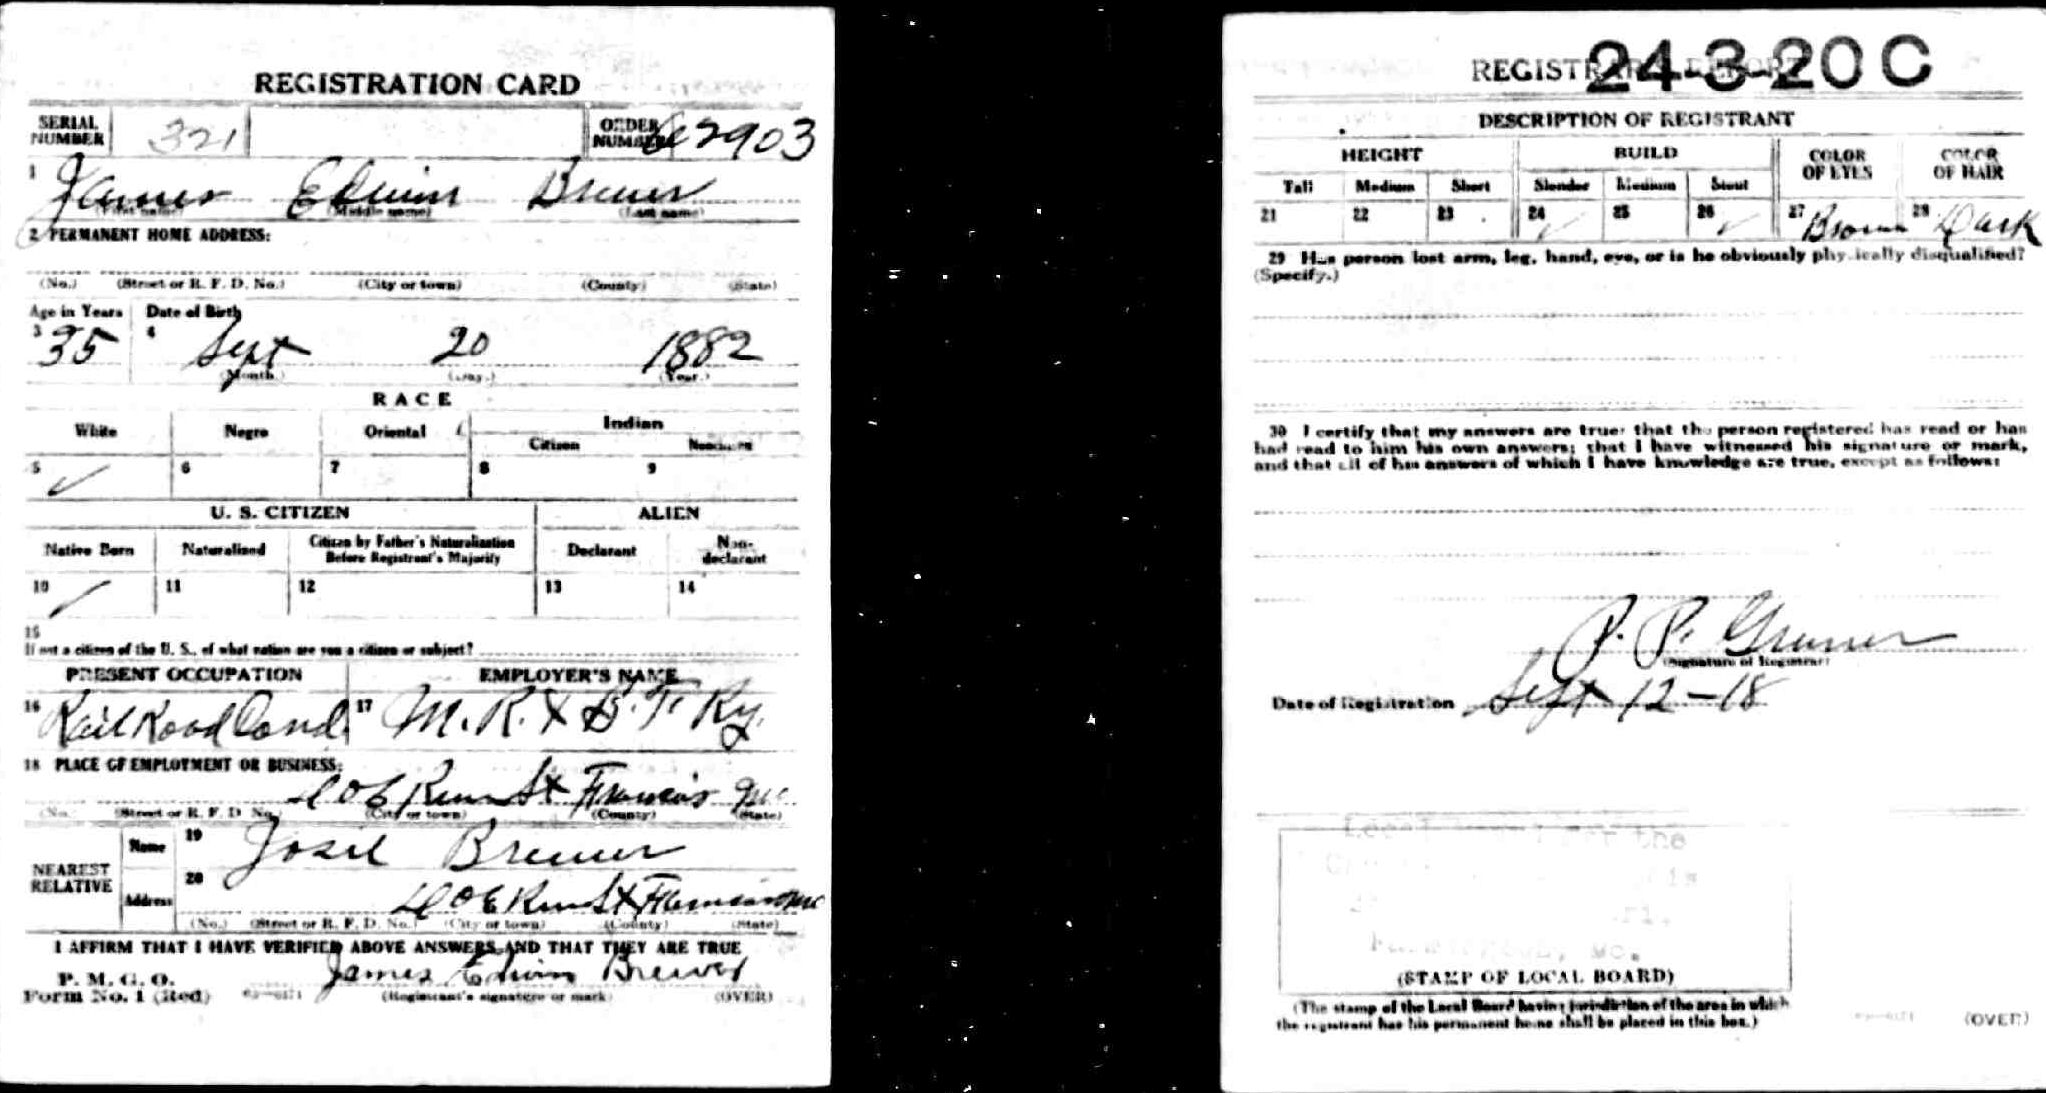 REGISTRATION CARD
SERIAL NUMBER 321 ORDER NUMBER 2903
1 James Edwin Brewer
(First name) (Middle name) (Last name)
2 PERMANENT HOME ADDRESS:
(No.) (Street or R. F. D. No.) (City or town) (County) (State)
Age in Years Date of Birth
3 35 4 Sept 20 1882
(Month.) (Day.) (Year.)
RACE
White Negro Oriental Indian
Citizen Noncitizen
5 ✓ 6 7 8 9
U. S. CITIZEN ALIEN
Native Born Naturalized Citizen by Father's Naturalization Before Registrant's Majority Declarant Non-declarant
10 ✓ 11 12 13 14
15
If not a citizen of the U. S., of what nation are you a citizen or subject?
PRESENT OCCUPATION EMPLOYER'S NAME
16 Rail Road Cond. 17 M. R. & B. T. Ry.
18 PLACE OF EMPLOYMENT OR BUSINESS:
Doe Run St Francis Mo
(No.) (Street or R. F. D. No.) (City or town) (County) (State)
NEAREST RELATIVE Name 19 Josie Brewer
Address 20 Doe Run St Francois Mo
(No.) (Street or R. F. D. No.) (City or town) (County) (State)
I AFFIRM THAT I HAVE VERIFIED ABOVE ANSWERS AND THAT THEY ARE TRUE
P. M. G. O.
Form No. 1 (Red) James Edwin Brewer
(Registrant's signature or mark) (OVER)
REGISTRAR'S REPORT
24-3-20 C
DESCRIPTION OF REGISTRANT
HEIGHT BUILD COLOR OF EYES COLOR OF HAIR
Tall Medium Short Slender Medium Stout
21 22 23 24 ✓ 25 26 ✓ 27 Brown 28 Dark
29 Has person lost arm, leg, hand, eye, or is he obviously physically disqualified?
(Specify.)
30 I certify that my answers are true; that the person registered has read or has
had read to him his own answers; that I have witnessed his signature or mark,
and that all of his answers of which I have knowledge are true, except as follows:
P. P. Gruner
(Signature of Registrar)
Date of Registration Sept 12-18
Local the
Mo.
(STAMP OF LOCAL BOARD)
(The stamp of the Local Board having jurisdiction of the area in which
the registrant has his permanent home shall be placed in this box.)
(OVER)